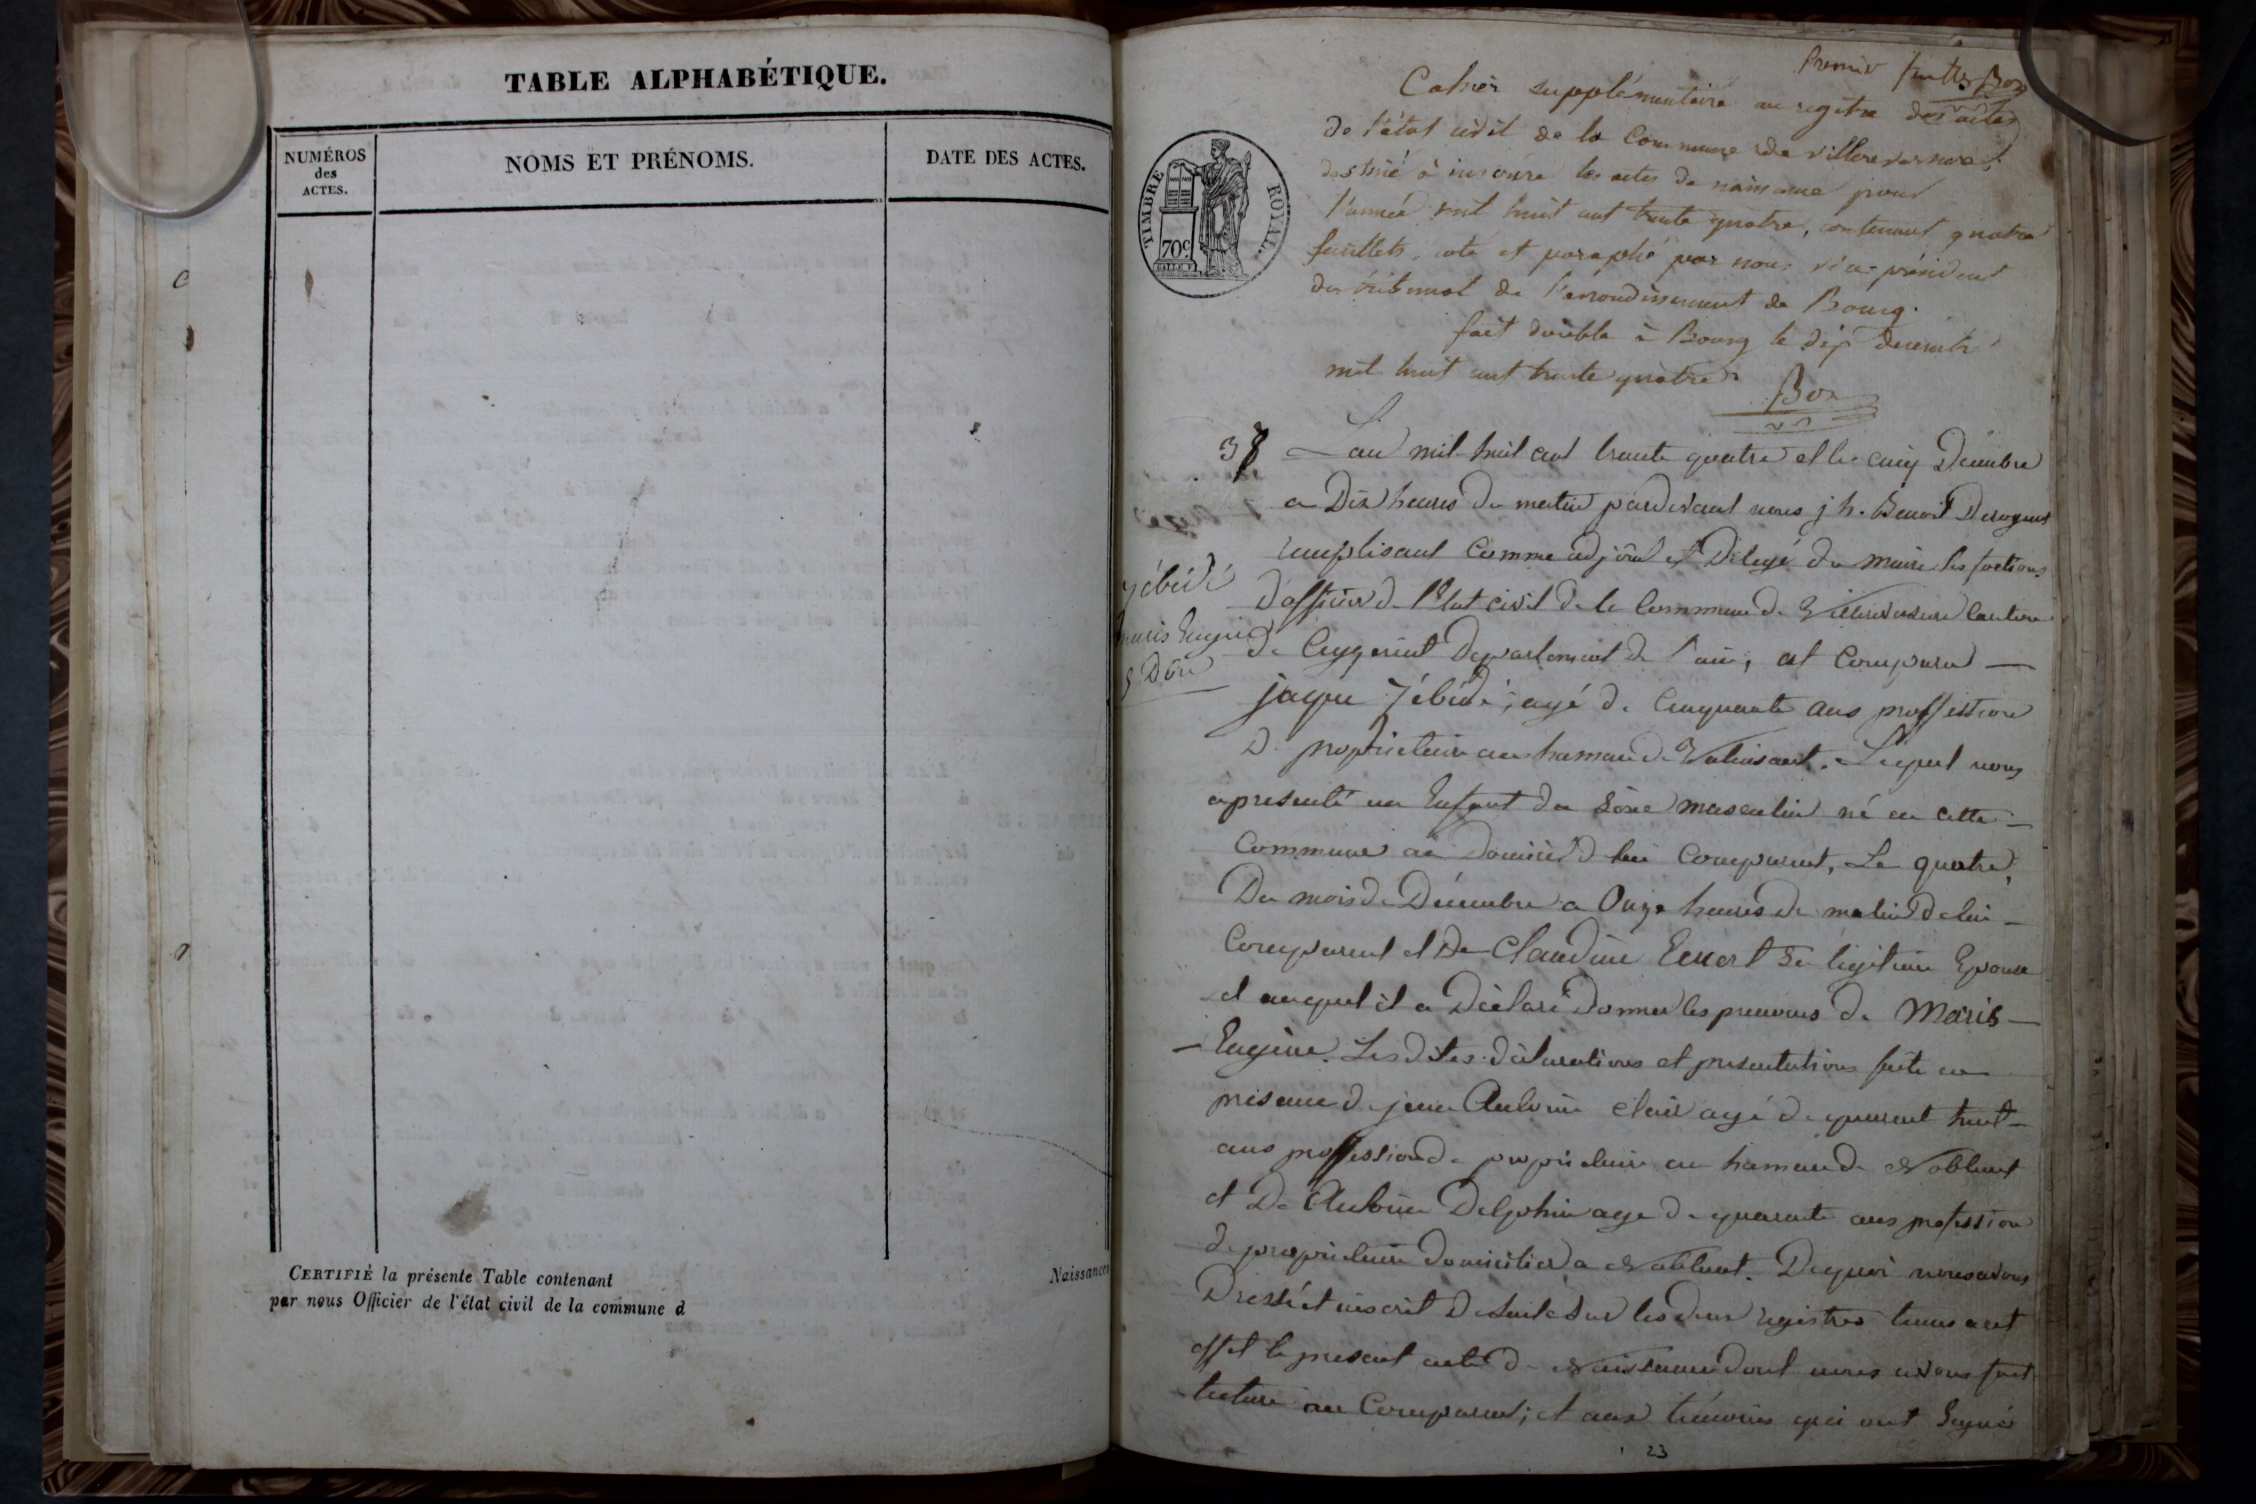 TABLE ALPHABÉTIQUE.
NUMÉROS
des
ACTES.
NOMS ET PRÉNOMS.
DATE DES ACTES.
CERTIFIÉ la présente Table contenant
par nous Officier de l'état civil de la commune d
Naissances
Premier Bon
Cahier supplémentaire au registre des actes
de l'état civil de la Commune de villereversure
destiné à inscrire les actes de naissance pour
l'année mil huit cent trente quatre, contenant quatre
feuillets, coté et paraphé par nous vice-président
du tribunal de l'arrondissement de Bourg.
fait double à Bourg le dix decembre
mil huit cent trente quatre
Bon
TIMBRE ROYAL
70c
38
L'an mil huit cent trente quatre et le cinq Décembre
a Dix heures du matin pardevant nous j h. Benoit
remplisant Comme adjoint et Délegé du maire les foctions
D'officier de l'Etat civil de la Commune de Villereversure Canton
de Ceyzeriat Departement de l'ain, est Comparu
jaque Zébédé, agé de Cinquante ans proffession
De propriétaire au hamau de Noblens. Lequel nous
a presenté un Enfant du sèxe masculin né en cette
Commune au Domicile de lui Comparent, Le quatre,
Du mois de Décembre a Onze heures du matin De lui
Comparent et De Claudine sa legitime Epouse
et auquel il a Déclaré Donner les prenoms de Maris
Eugène. Les dites déclarations et presentations faite en
presence de jean Antoine clair agé de quarant huit
ans proffession de propriétaire au hamau de Noblent
et De Antoine Delphin age de quarante ans profession
de propriétaire Domicilié a Noblent. De quoi nous avons
Dressé et inscrit De suite sur les deux registres tenus a cet
effet le present acte de Naissance dont nous avons fait
lecture au Comparent, et aux témoins qui ont Signé
Zébédé
maris Eugène
23